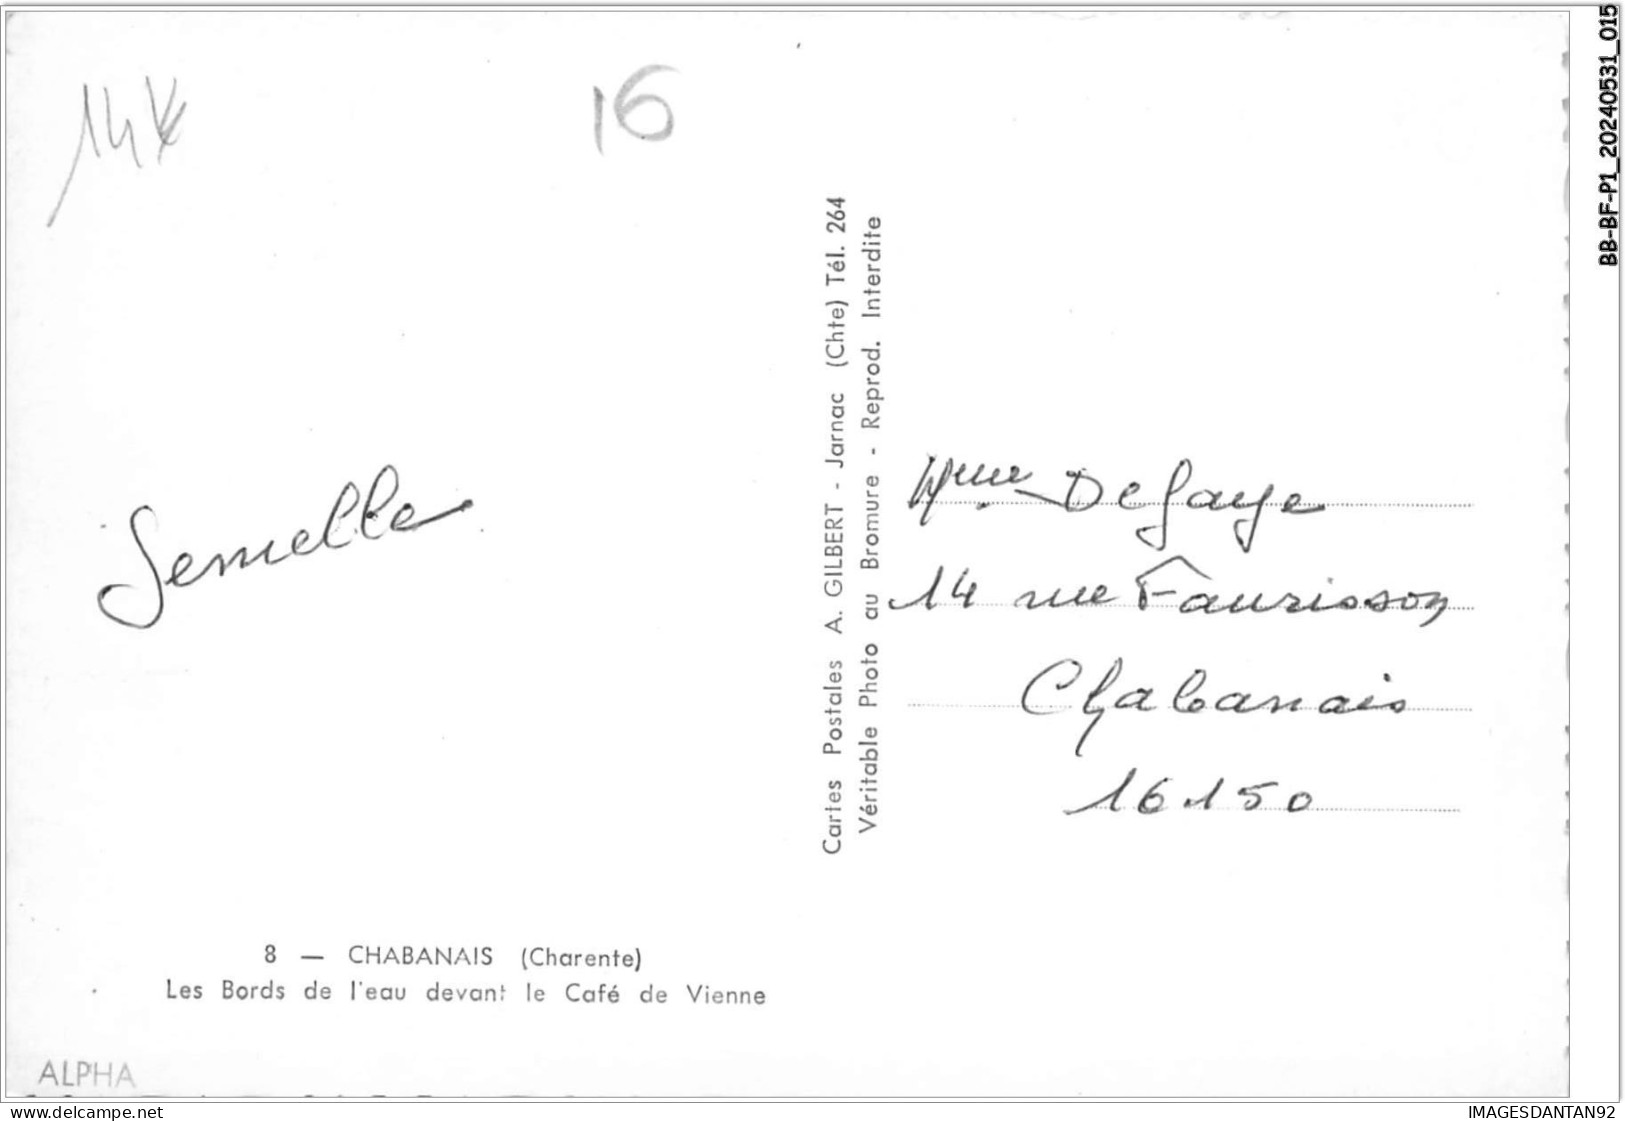 16
Semelle
Cartes Postales A. GILBERT - Jarnac (Chte) Tél. 264
Véritable Photo au Bromure - Reprod. Interdite
Mme Defaye
14 rue Faurisson
Chabanais
16150
8 — CHABANAIS (Charente)
Les Bords de l'eau devant le Café de Vienne
ALPHA
BB-BF-P1_20240531_015
www.delcampe.net
IMAGESDANTAN92